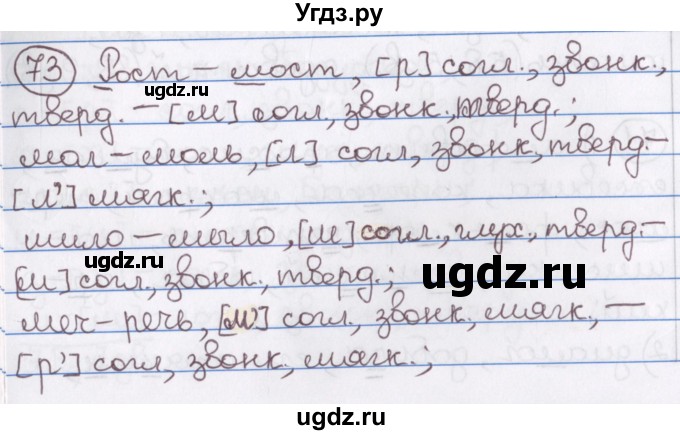 Угдз.ру
73 Рост – мост, [р] согл., звонк.,
тверд. – [м] согл, звонк., тверд.;
мол – моль, [л] согл, звонк, тверд. –
[л'] мягк.;
шило – мыло, [ш] согл., глух., тверд. –
[м] согл, звонк, тверд.;
меч – речь, [м'] согл, звонк, мягк., –
[р'] согл, звонк., мягк.;
ugdz.ru
ugdz.ru
ugdz.ru
ugdz.ru
ugdz.ru